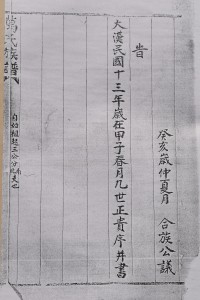 癸亥歲仲夏月 合族公議
旹
大漢民國十三年歲在甲子春月九世正貴序并書
氏族譜
自始祖起五公分